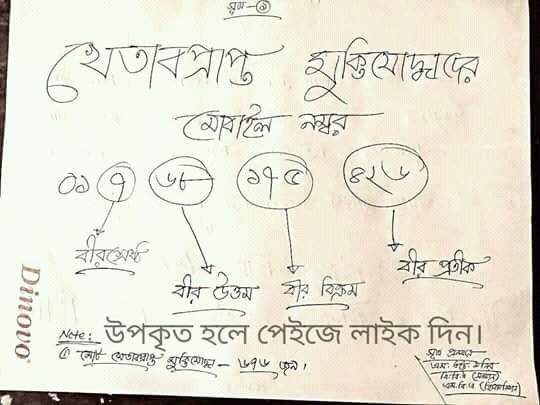 সূত্র - ১
খেতাবপ্রাপ্ত মুক্তিযোদ্ধাদের
মোবাইল নম্বর
০১৭ ৬৮ ১৭৫ ৪২৬
বীরশ্রেষ্ঠ
বীর উত্তম
বীর বিক্রম
বীর প্রতীক
Dinovo
উপকৃত হলে পেইজে লাইক দিন।
Note:
মোট খেতাবপ্রাপ্ত মুক্তিযোদ্ধা - ৬৭৬ জন।
সূত্র প্রদানে